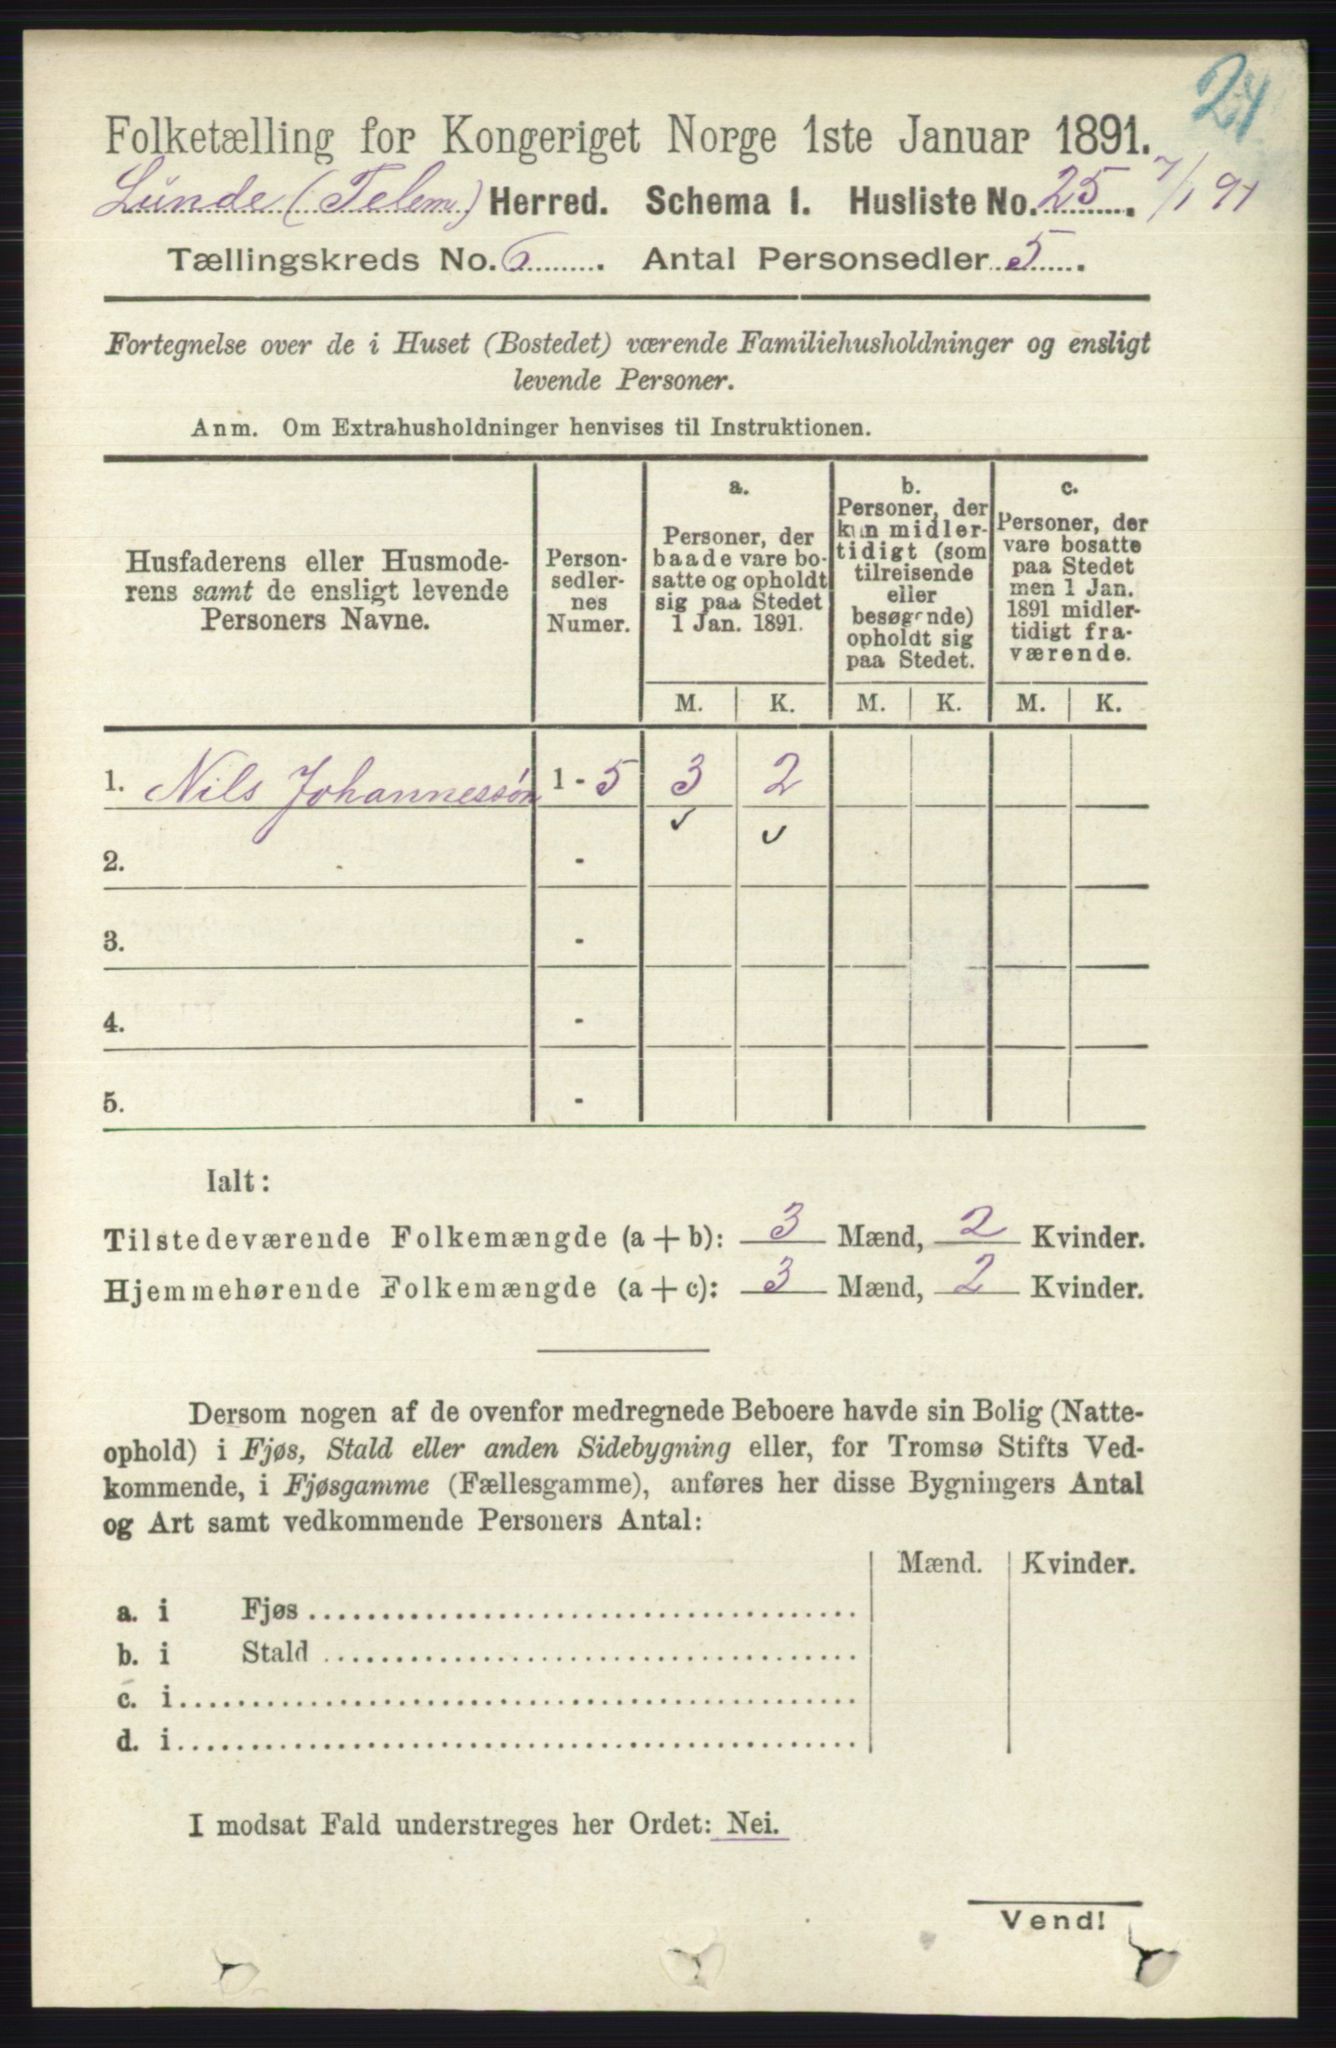 24
Folketælling for Kongeriget Norge 1ste Januar 1891.
Lunde (Telem.) Herred. Schema I. Husliste No. 25. 7/1 91
Tællingskreds No. 6. Antal Personsedler 5.
Fortegnelse over de i Huset (Bostedet) værende Familiehusholdninger og ensligt
levende Personer.
Anm. Om Extrahusholdninger henvises til Instruktionen.
Husfaderens eller Husmode-
rens samt de ensligt levende
Personers Navne.
Person-
sedler-
nes
Numer.
a.
Personer, der
baade vare bo-
satte og opholdt
sig paa Stedet
1 Jan. 1891.
b.
Personer, der
kun midler-
tidigt (som
tilreisende
eller
besøgende)
opholdt sig
paa Stedet.
c.
Personer, der
vare bosatte
paa Stedet
men 1 Jan.
1891 midler-
tidigt fra-
værende.
M. K. M. K. M. K.
1. Nils Johannessön 1 - 5 3 2
2. -
3. -
4. -
5. -
Ialt:
Tilstedeværende Folkemængde (a + b): 3 Mænd, 2 Kvinder.
Hjemmehørende Folkemængde (a + c): 3 Mænd, 2 Kvinder.
Dersom nogen af de ovenfor medregnede Beboere havde sin Bolig (Natte-
ophold) i Fjøs, Stald eller anden Sidebygning eller, for Tromsø Stifts Ved-
kommende, i Fjøsgamme (Fællesgamme), anføres her disse Bygningers Antal
og Art samt vedkommende Personers Antal:
Mænd. Kvinder.
a. i Fjøs
b. i Stald
c. i
d. i
I modsat Fald understreges her Ordet: Nei.
Vend!